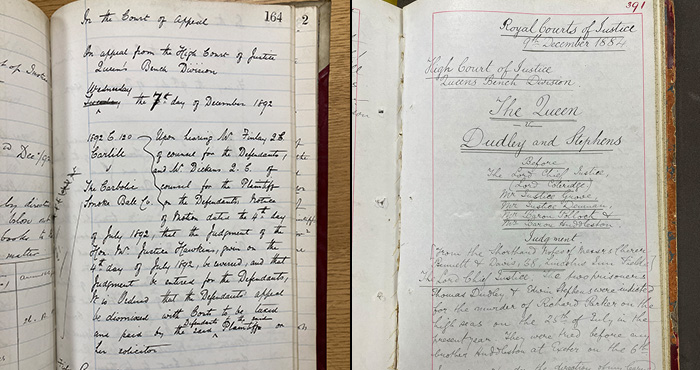 In the Court of Appeal
164
2
On appeal from the High Court of Justice
Queen's Bench Division
Wednesday
the 7th day of December 1892
1892 C. 120
Carlill
v
The Carbolic
Smoke Ball Co.
Upon hearing Mr Finlay Q.C.
of counsel for the Defendants,
and Mr Dickens Q.C. of
counsel for the Plaintiff
on the Defendants Notice
of Motion dated the 9th day
of July 1892, that the judgment of the
Hon. Mr Justice Hawkins, given on the
4th day of July 1892, be reversed, and that
Judgment be entered for the Defendants,
It is Ordered that the Defendants appeal
be dismissed with Costs to be taxed
and paid by the Defendants to the said Plaintiff or
her solicitor
391
Royal Courts of Justice
9th December 1884
High Court of Justice
Queens Bench Division
The Queen
v
Dudley and Stephens
Before
The Lord Chief Justice,
(Lord Coleridge)
Mr Justice Grove
Mr Justice Denman
Mr Baron Pollock &
Mr Baron Huddleston
Judgment
From the Shorthand Notes of Messrs
The Lord Chief Justice The two prisoners
Thomas Dudley & Edwin Stephens were indicted
for the murder of Richard Parker on the
high seas on the 25th of July in the
present year. They were tried before my
brother Huddleston at Exeter on the 6th